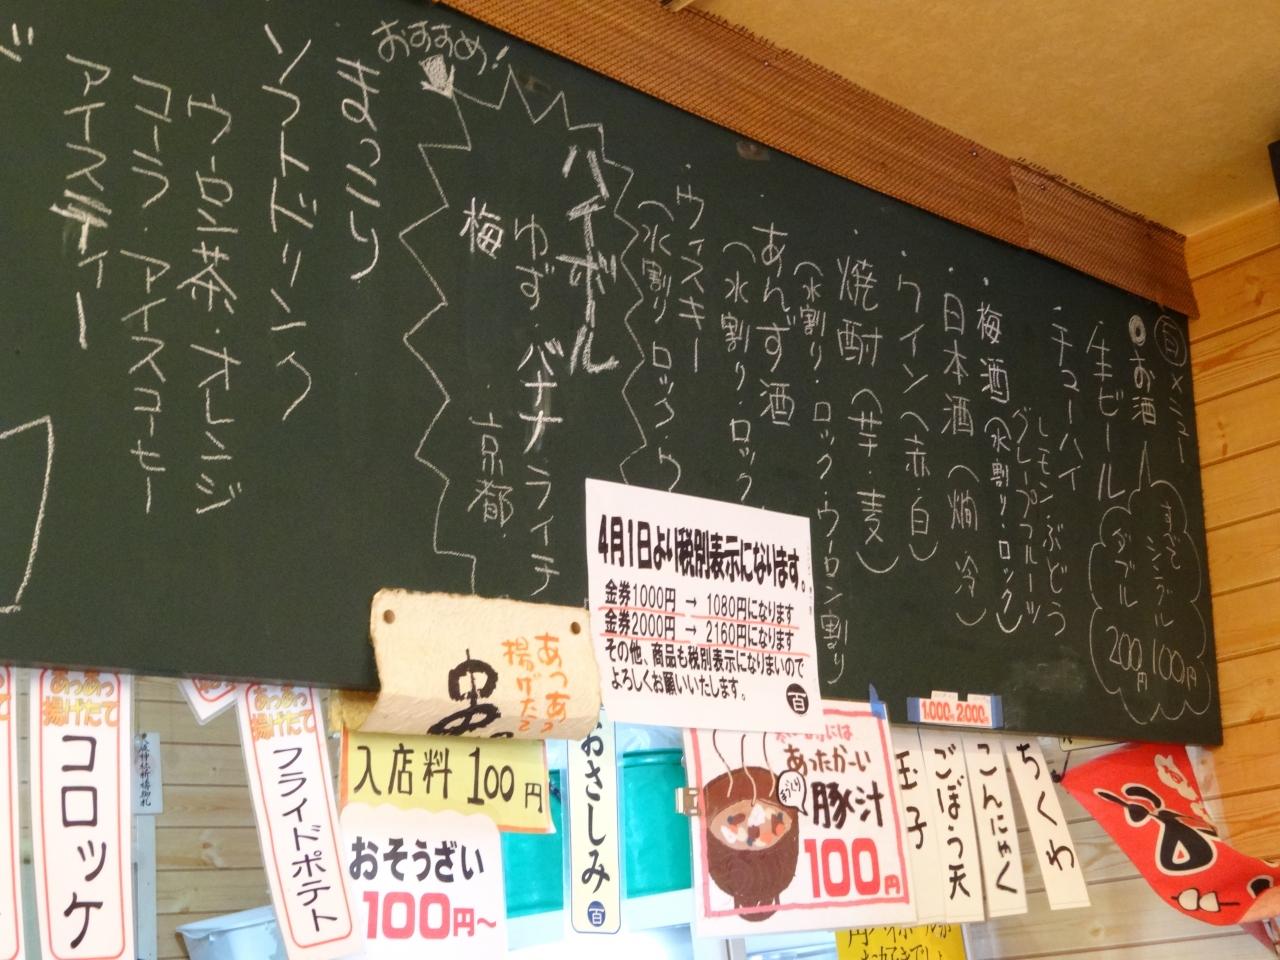 百メニュー
◎お酒
すべて
シングル 100円
ダブル 200円
生ビール
・チューハイ
レモン・ぶどう
グレープフルーツ
・梅酒(水割り・ロック)
・日本酒(燗・冷)
・ワイン(赤・白)
・焼酎(芋・麦)
(水割り・ロック・ウーロン割り)
・あんず酒
(水割り・ロック
・ウィスキー
(水割り・ロック・ウ
おすすめ!
ハイボール
ゆず・バナナ・ライチ
梅
京都
まっこり
ソフトドリンク
ウーロン茶・オレンジ
コーラ・アイスコーヒー
アイスティー
4月1日より税別表示になります。
金券1000円 → 1080円になります
金券2000円 → 2160円になります
その他、商品も税別表示になりまいので
よろしくお願いいたします。
百
あつあつ
揚げたて
串
あつあつ
揚げたて
コロッケ
あつあつ
揚げたて
フライドポテト
入店料 100円
おそうざい
100円~
おさしみ
百
あったかーい
豚汁
100円
1.000 2.000
玉子
ごぼう天
こんにゃく
ちくわ